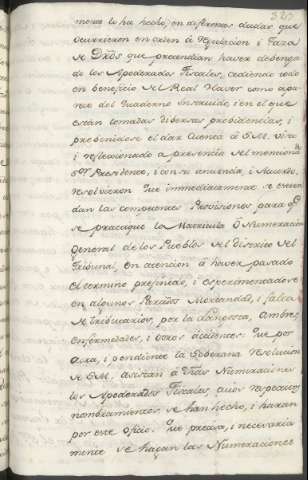 mero lo ha hecho, en diferentes dudas que
ocurrieron en orden à regulacion i Taza
de Dros que pretendian haver debenga
de los Apoderados Fiscales, cediendo todo
en beneficio del Real Haver como apa
rece del Quaderno Instruido, i en el que
están tomadas diversas probidencias, i
probeniedose el dar cuenta à S.M. visto
i reflexionado a presencia del mencionado
Sor Presidente, i con su anuencia, i Acuerdo,
resolvieron Que inmediatamente se expen
dan las competentes Provisiones para qe
se practique la Matricula ò Numeracion
general de los Pueblos del distrito del
Tribunal, en atencion à haver pasado
el termino prefinido, i experimentadose
en algunos Partidos Mortandad, i falta
de tributarios, por la Langosta, ambre,
enfermedades, i otros accidentes: Que por
aora, i pendiente la Soberana resolucion
de S.M. asistan à dhas Numeraciones
los Apoderados Fiscales, cuios respectivos
nombramientos se han hecho, i haran
por este oficio: Que precisa, i necesaria
mente se hagan las Numeraciones